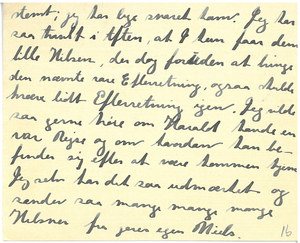 stemt; jeg har lige svaret ham. Jeg har
saa tænkt i Aften, at I kan faa den
lille Hilsen, der dog foruden at bringe
den nævnte rare Efterretning, ogsaa skulde
hente lidt Efterretning igen. Jeg vilde
saa gerne høre om Harald havde en
rar Rejse og om hvordan han be-
finder sig efter at være kommen hjem.
Jeg selv har det saa udmærket og
sender saa mange mange mange
Hilsner fra jeres egen Niels.
16